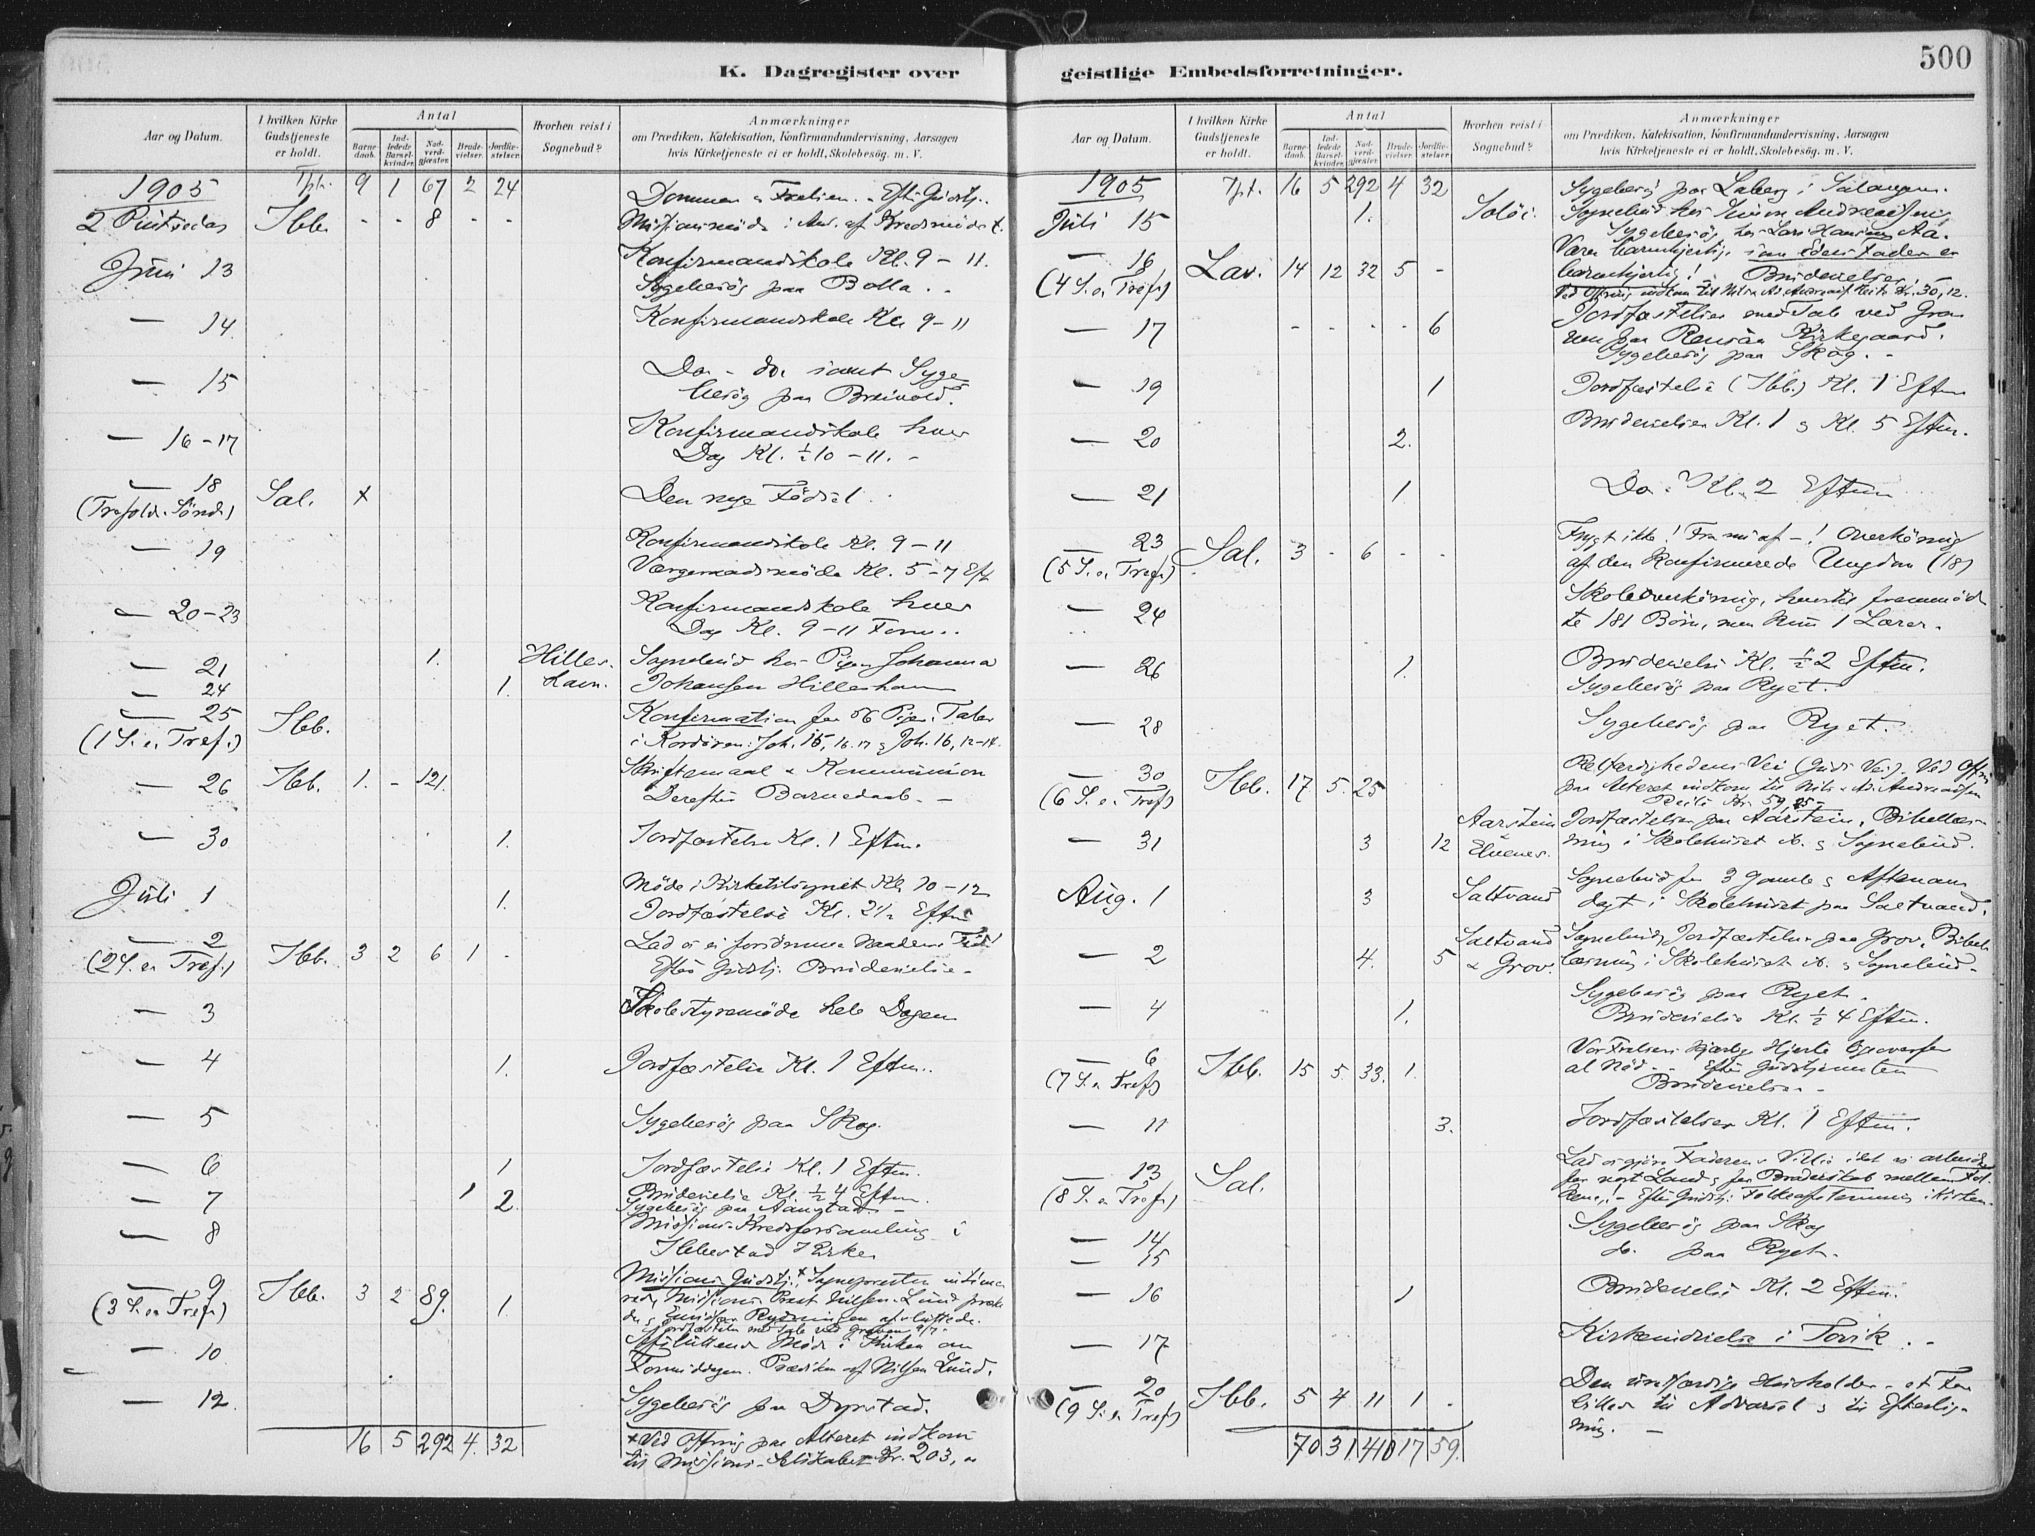 500
K. Dagregister over geistlige Embedsforretninger.
Aar og Datum.
I hvilken Kirke Gudstjeneste er holdt.
Antal
Barnedaab.
Indledede Barselkvinder.
Nadverdgjæster.
Brudevielser.
Jordfæstelser.
Hvorhen reist i Sognebud?
Anmærkninger
om Prædiken, Katekisation, Konfirmandundervisning, Aarsagen
hvis Kirketjeneste ei er holdt, Skolebesøg. m. V.
1905 Tpt. 9 1 67 2 24 Dommen Frelsen. Efter Gudstj.
2 Pintsedag Ibb. - - 8 - - Missionsmøde i
Juni 13 Konfirmandskole Kl. 9-11.
Sygebesøg paa Bolla.
— 14. Konfirmandskole Kl. 9-11
— 15 Do - do samt Syge
besøg paa Breivold.
— 16-17 Konfirmandskole hver
Dag Kl. ½10-11. -
— 18 Sal. +
(Trefold. Sønd.) Den nye Fødsel.
— 19 Konfirmandskole Kl. 9-11
Værgeraadsmøde Kl. 5-7 Eft.
— 20-23 Konfirmandskole hver
Dag Kl. 9-11 Form..
— 21 1. Hilles- Sognebud hos Pigen Johanna
— 24 1. havn. Johansen Hilleshavn
— 25 Ibb. Konfirmation for 56 Piger. Taler
(1 S. e. Tref.) i Kordøren: Joh. 15, 16.17 & Joh. 16, 12-14.
— 26 Ibb. 1. - 121. Skriftemaal & Kommunion
Derefter Barnedaab. -
— 30 1. Jordfæstelse Kl. 1 Eftm.
Juli 1 1. Møde i Kirketilsynet Kl. 10-12
Jordfæstelse Kl. 2½ Eftm
— 2 Ibb. 3 2 6 1 - Lad os ei forsømme Naadens Tid!
(2 S. e. Tref.) Efter Gudstj. Brudevielse.
— 3 Skolestyremøde hele Dagen
— 4 1. Jordfæstelse Kl. 1 Eftm..
— 5 Sygebesøg paa Skog.
— 6 1 Jordfæstelse Kl. 1 Eftm.
— 7 1 2. Brudevielse Kl. ½4 Eftm.
Sygebesøg paa Aanstad -
— 8 Missions-Kredsforsamling i
Ibbestad Kirke
— 9 Ibb. 3 2 89. 1 Missions Gudstj.+ Sognepresten
(3 S. e. Tref.) Missions Prest Nilsen-Lund
— 10 Afsluttende Møde i Kirken om
Formiddagen. Prædiken af Nilsen Lund.
— 12. Sygebesøg paa Dyrstad.
16 5 292 4. 32 + Ved Ofring paa Alteret indkom
til Missions-Selskabet Kr. 203,
Aar og Datum.
I hvilken Kirke Gudstjeneste er holdt.
Antal
Barnedaab.
Indledede Barselkvinder.
Nadverdgjæster.
Brudevielser.
Jordfæstelser.
Hvorhen reist i Sognebud?
Anmærkninger
om Prædiken, Katekisation, Konfirmandundervisning, Aarsagen
hvis Kirketjeneste ei er holdt, Skolebesøg. m. V.
1905 Tpt. 16 5 292 4 32 Sygebesøg paa Laberg i Salangen.
Juli 15 1. Soløi. Sognebud hos
Sygebesøg hos Lars Hansen Aa.
— 16 Lav. 14 12 32 5 - Vær barmhjertige, som Eders Fader er
(4 S. e. Tref.) barmhjertig! - Brudevielser,
Kr. 30,12.
— 17 - - - - 6 Jordfæstelser med Tale ved Gra-
ven paa Rensaa Kirkegaard.
Sygebesøg paa Skog. -
— 19 1 Jordfæstelse (Ibb.) Kl. 1 Eftm
— 20 2. Brudevielser Kl. 1 & Kl. 5 Eftm.
— 21 1. Do. Kl. 2 Eftm
— 23 Sal. 3 - 6 - - Frygt ikke! Fra nu af -! Overhøring
(5 S. e. Tref.) af den konfirmerede Ungdom (18)
— 24 Skoleoverhøring, hvortil fremmød-
te 181 Børn, men kun 1 Lærer.
— 26 1. Brudevielse Kl. ½2 Eftm.
Sygebesøg paa Ryet.
— 28 Sygebesøg paa Ryet.
— 30 Ibb. 17 5. 25 Retfærdighedens Vei (Guds Vei). Ved Ofring
(6 S. e. Tref) paa Alteret indkom til Nils A. Andreassen
— 31 3 12 Aarstein Jordfæstelser paa Aarstein, Bibellæs-
Elvenes. ning i Skolehuset & Sognebud.
Aug. 1 3 Saltvand Sognebud for 3 gamle & Aftenan-
dagt i Skolehuset paa Saltvand.
— 2 4. 5 Saltvand Sognebud, Jordfæstelse paa Grov, Bibel-
& Grov. læsning i Skolehuset & Sognebud.
— 4 1. Sygebesøg paa Ryet.
Brudevielse Kl. ½4 Eftm.
— 6 Ibb. 15 5. 33. 1. Vor Frelsers kjærlige Hjerte ligeoverfor
(7 S. e. Tref) al Nød. - Efter Gudstjenesten
Brudevielse -
— 11 3. Jordfæstelser Kl. 1 Eftm.
— 13 Sal. Lad os gjøre Faderens Villie i det at arbeide
(8 S. e. Tref.) for vort Land & for Broderskab mellem Fol-
kene. - Efter Gudstj. Folkeafstemning i Kirken.
— 14 Sygebesøg paa Skog
— 15 do. paa Ryet.
— 16 1 Brudevielse Kl. 2 Eftm.
— 17 Kirkeindvielse i Tovik. -
— 20 Ibb. 5 4 11 1 - Den uretfærdige Husholder - et For-
(9 S. e. Tref) billede til Advarsel & til Efterlig-
ning. -
70 31 410 17 59.